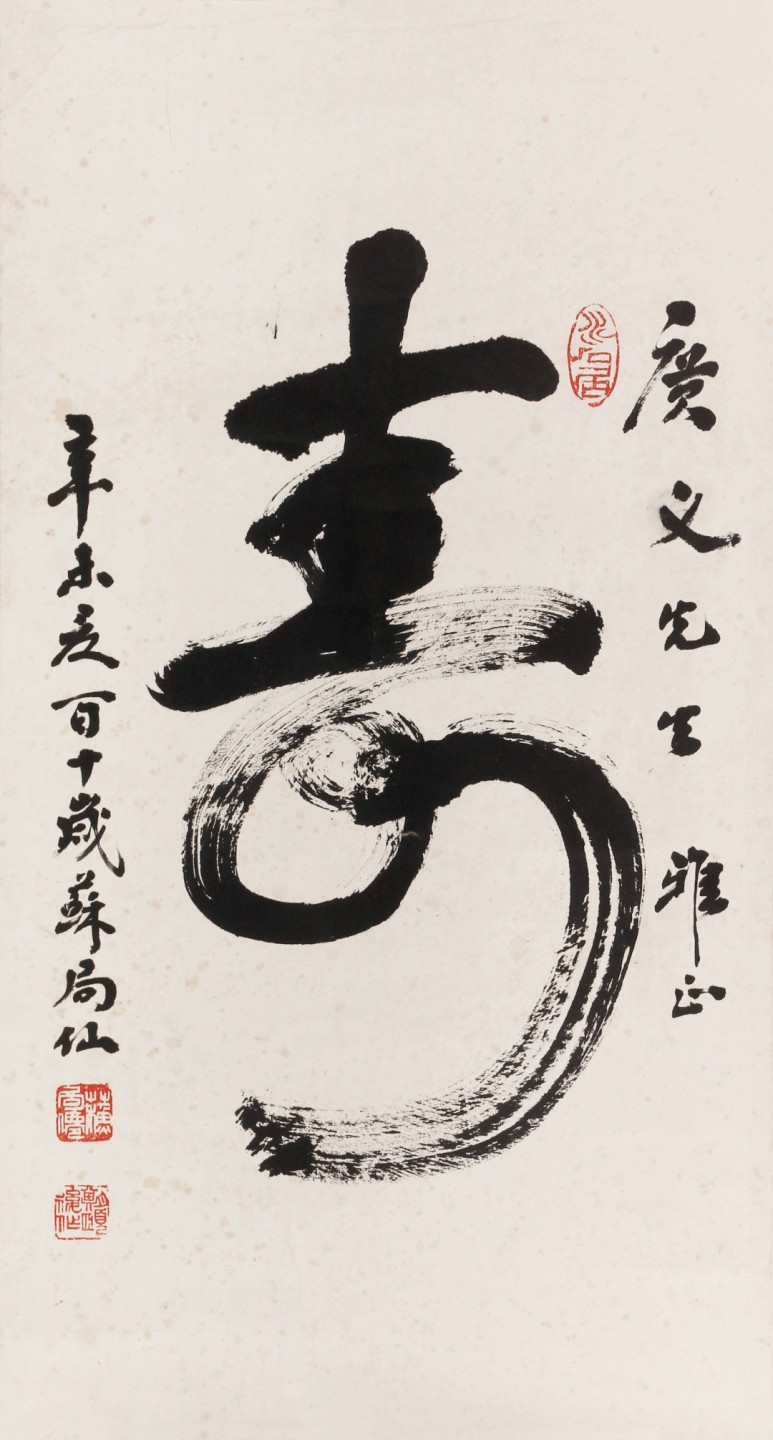 廣文先生 雅正
壽
辛未夏百十歲蘇局仙
蘇局僊